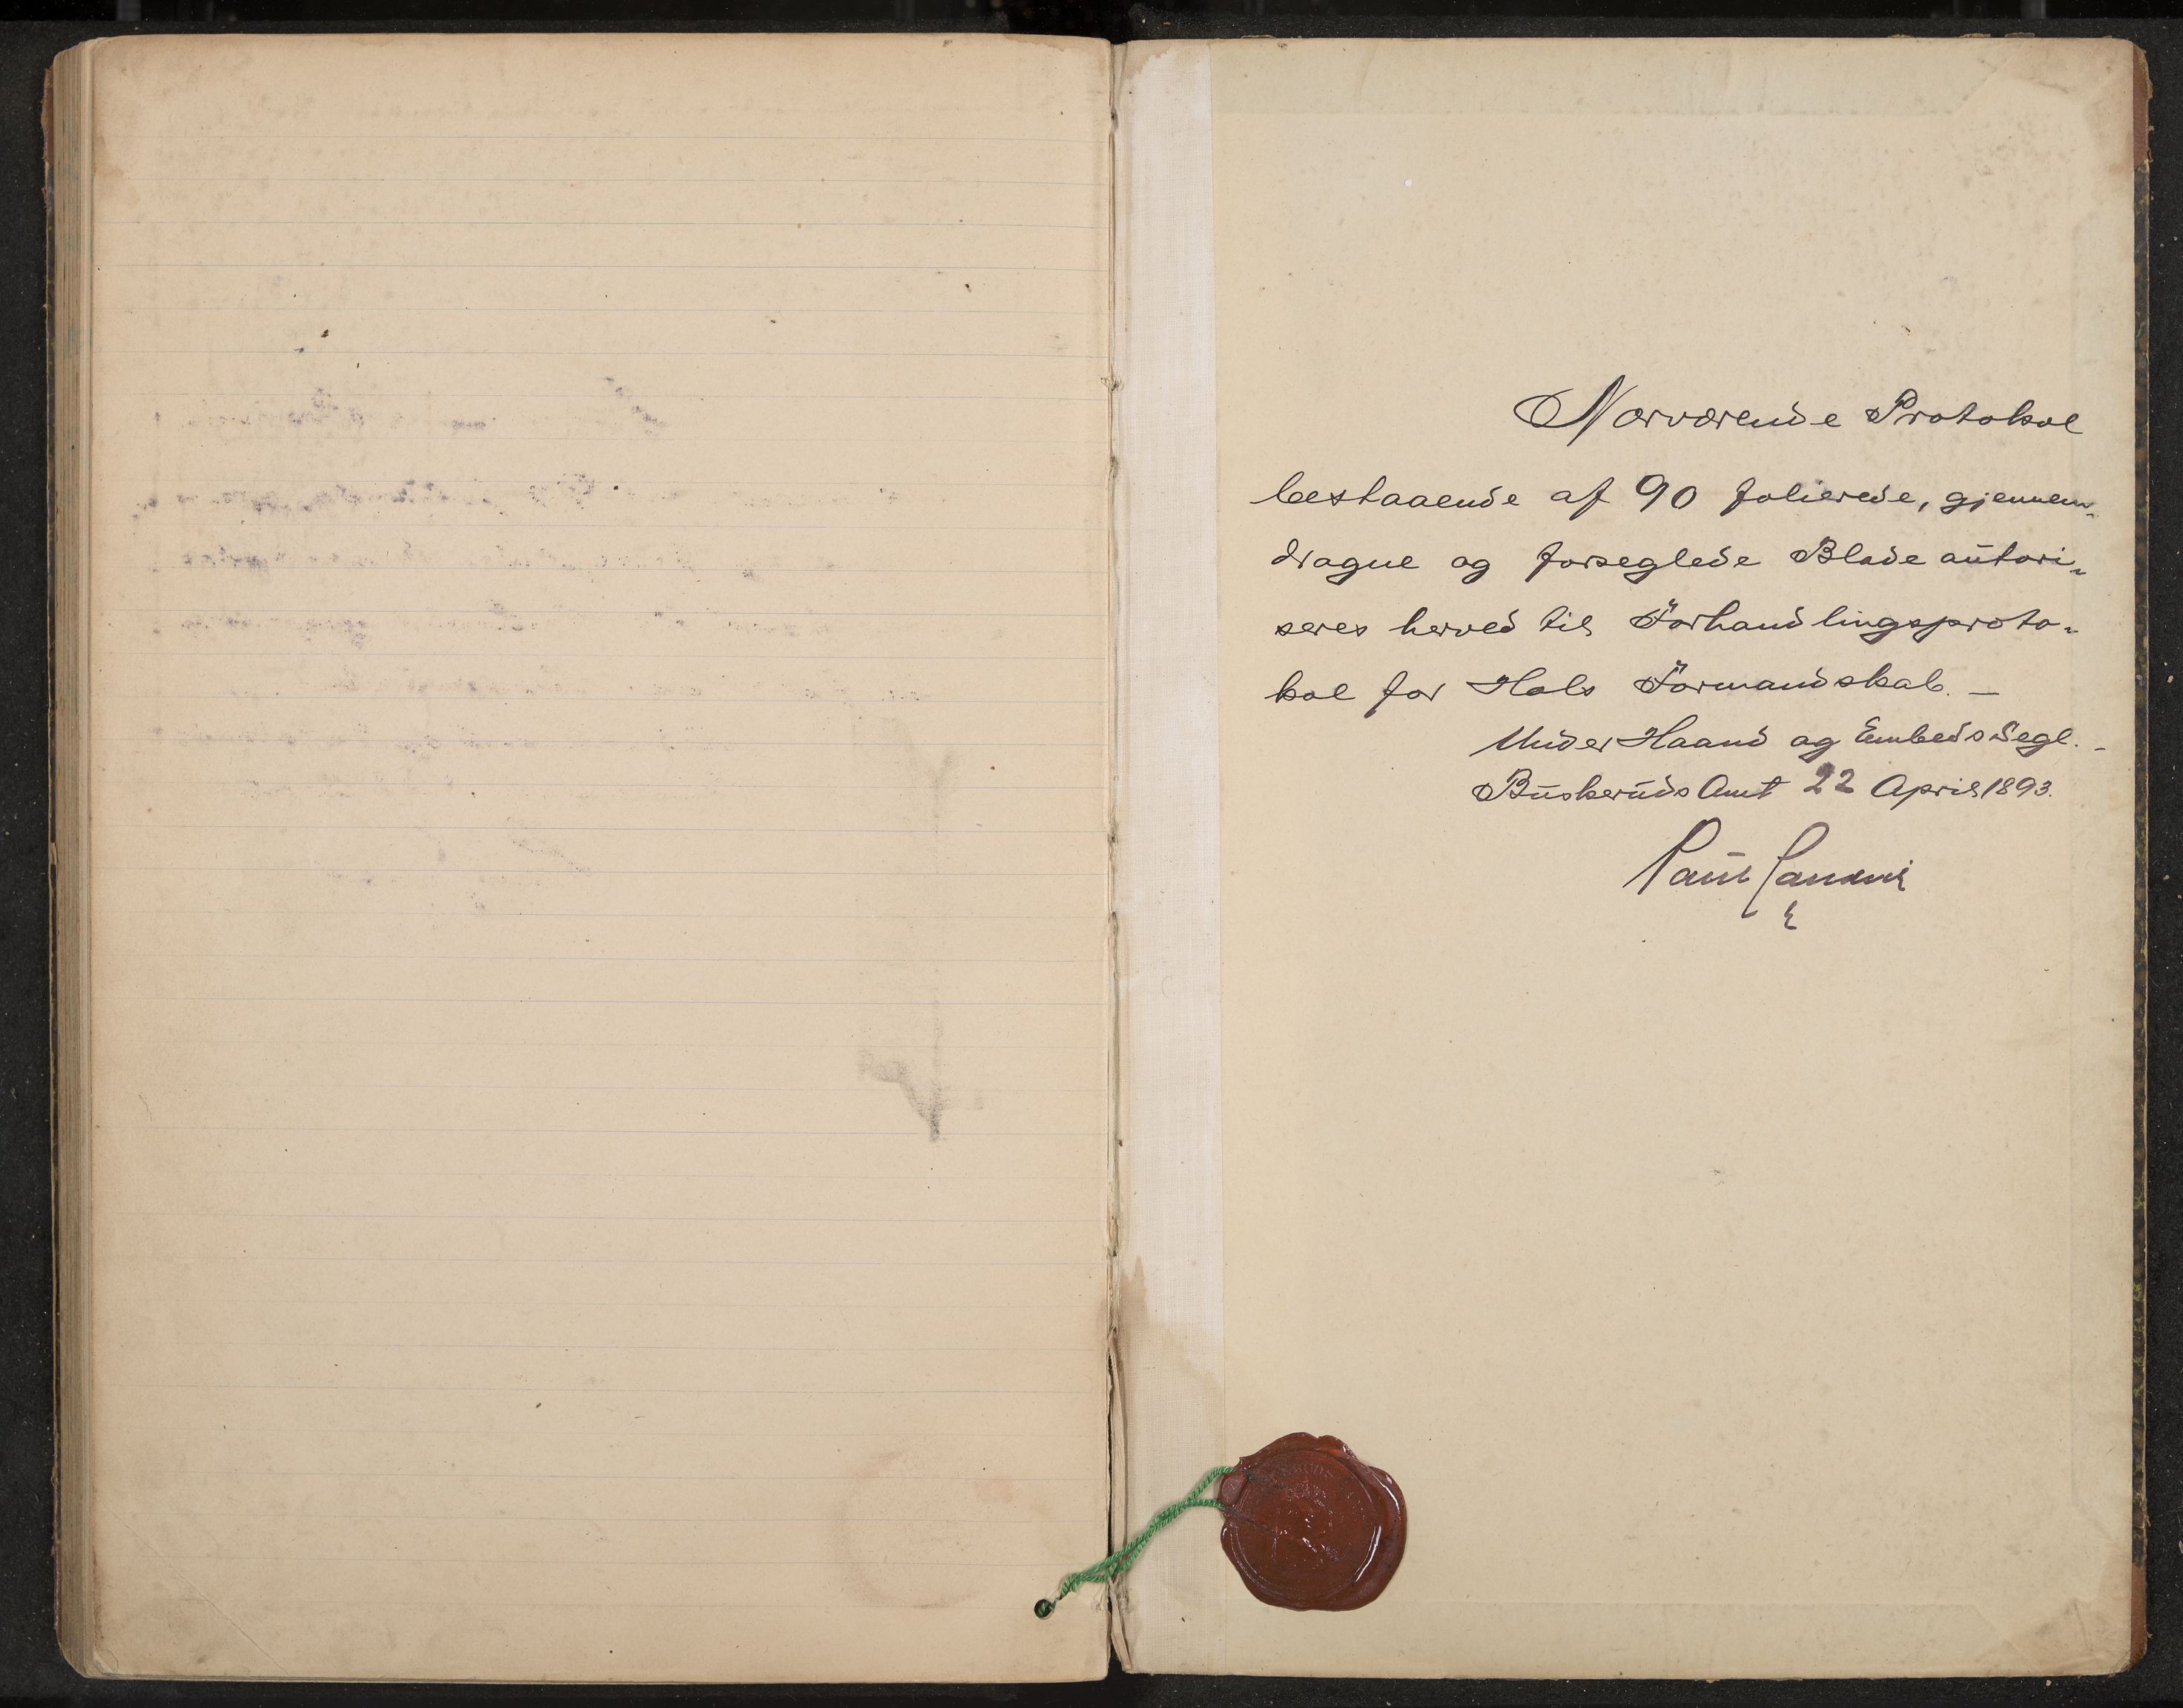 Nærværende Protokol
bestaaende af 90 folierede, gjennem-
dragne og forseglede Blade autori-
seres herved til Forhandlingsproto-
kol for Hols Formandskab. —
Under Haand og Embedssegl. -
Buskeruds Amt 22 April 1893.
Paul